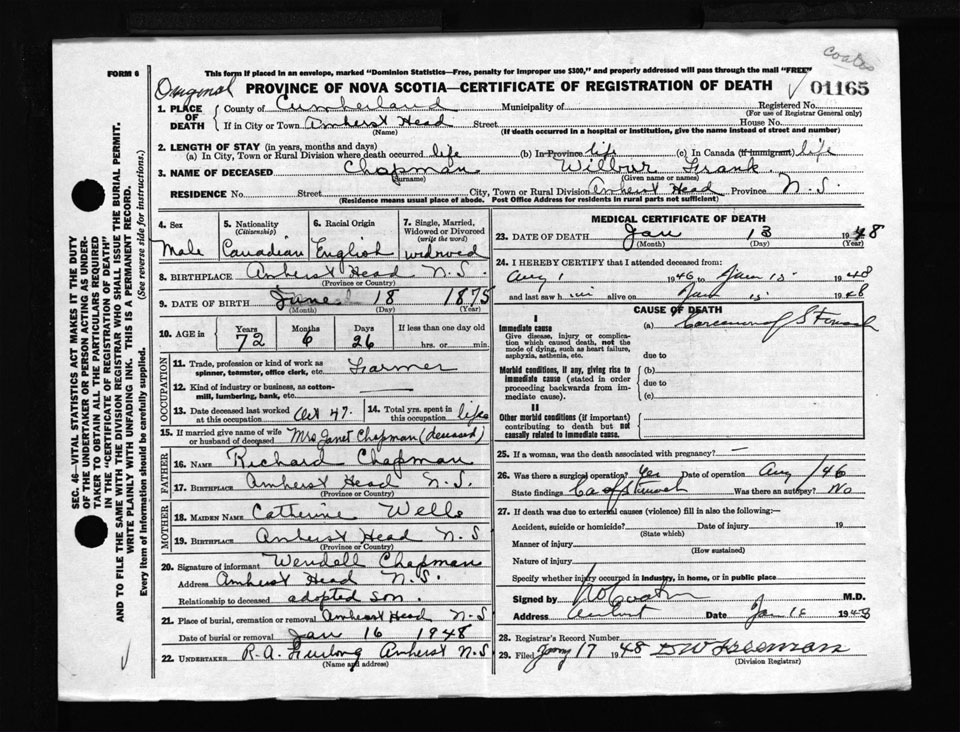 Coates
FORM 6
This form if placed in an envelope, marked "Dominion Statistics—Free, penalty for improper use $300," and properly addressed will pass through the mail "FREE"
Original PROVINCE OF NOVA SCOTIA—CERTIFICATE OF REGISTRATION OF DEATH 01165
1. PLACE OF DEATH { County of Cumberland Municipality of Registered No.
(For use of Registrar General only)
If in City or Town Amherst Head Street House No.
(Name) (If death occurred in a hospital or institution, give the name instead of street and number)
2. LENGTH OF STAY (in years, months and days)
(a) In City, Town or Rural Division where death occurred life (b) In Province life (c) In Canada (if immigrant) life
3. NAME OF DECEASED Chapman Wilbur Frank
(Surname) (Given name or names)
RESIDENCE No. Street City, Town or Rural Division Amherst Head Province N.S.
(Residence means usual place of abode. Post Office Address for residents in rural parts not sufficient)
4. Sex 5. Nationality (Citizenship) 6. Racial Origin 7. Single, Married, Widowed or Divorced (write the word)
Male Canadian English widowed
8. BIRTHPLACE Amherst Head N.S.
(Province or Country)
9. DATE OF BIRTH June 18 1875
(Month) (Day) (Year)
10. AGE in Years Months Days If less than one day old
72 6 26 hrs. or min.
OCCUPATION
11. Trade, profession or kind of work as spinner, teamster, office clerk, etc. Farmer
12. Kind of industry or business, as cotton-mill, lumbering, bank, etc.
13. Date deceased last worked at this occupation Oct 47. 14. Total yrs. spent in this occupation life
15. If married give name of wife or husband of deceased Mrs Janet Chapman (deceased)
FATHER
16. NAME Richard Chapman
17. BIRTHPLACE Amherst Head N.S.
(Province or Country)
MOTHER
18. MAIDEN NAME Catherine Wells
19. BIRTHPLACE Amherst Head N.S
(Province or Country)
20. Signature of informant Wendell Chapman
Address Amherst Head N.S.
Relationship to deceased adopted son.
21. Place of burial, cremation or removal Amherst Head N.S
Date of burial or removal Jan 16 1948
22. UNDERTAKER R.A. Furlong Amherst N.S
(Name and address)
MEDICAL CERTIFICATE OF DEATH
23. DATE OF DEATH Jan 13 1948
(Month) (Day) (Year)
24. I HEREBY CERTIFY that I attended deceased from:
Aug 1 1946 to Jan 13 1948
and last saw him alive on Jan 13 1948
CAUSE OF DEATH
I
Immediate cause
Give disease, injury or complication which caused death, not the mode of dying, such as heart failure, asphyxia, asthenia, etc.
(a) Carcinoma of Stomach
due to
Morbid conditions, if any, giving rise to immediate cause (stated in order proceeding backwards from immediate cause).
(b)
due to
(c)
II
Other morbid conditions (if important) contributing to death but not causally related to immediate cause.
25. If a woman, was the death associated with pregnancy? —
26. Was there a surgical operation? Yes Date of operation Aug /46
State findings Ca of Stomach Was there an autopsy? No
27. If death was due to external causes (violence) fill in also the following:—
Accident, suicide or homicide? Date of injury 19
(State which)
Manner of injury
(How sustained)
Nature of injury
Specify whether injury occurred in industry, in home, or in public place
Signed by Coates M.D.
Address Amherst Date Jan 1948
28. Registrar's Record Number
29. Filed Jany 17 1948 D W Freeman
(Division Registrar)
SEC. 46—VITAL STATISTICS ACT MAKES IT THE DUTY
OF THE UNDERTAKER OR PERSON ACTING AS UNDER-
TAKER TO OBTAIN ALL THE PARTICULARS REQUIRED
IN THE "CERTIFICATE OF REGISTRATION OF DEATH"
AND TO FILE THE SAME WITH THE DIVISION REGISTRAR WHO SHALL ISSUE THE BURIAL PERMIT.
WRITE PLAINLY WITH UNFADING INK. THIS IS A PERMANENT RECORD.
Every item of information should be carefully supplied. (See reverse side for instructions.)